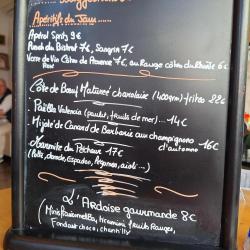 Apéritifs du Jour.....
Apérol Spritz 9€
Punch du Bistrot 7€, Sangria 7€
Verre de Vin Côtes de 7€, ou Rouge Côtes du Rhône 6€
Rosé
Côte de Bœuf Maturée charolaise (400grm) frites 22€
Paëlla Valencia (poulet, fruits de mer)...14€
Mijoté de Canard de Barbarie aux champignons
d'automne 16€
Marmite du Pêcheur 17€
aïoli...)
L'Ardoise gourmande 8€
tiramisu, fruits Rouges,
Fondant choco, chantilly